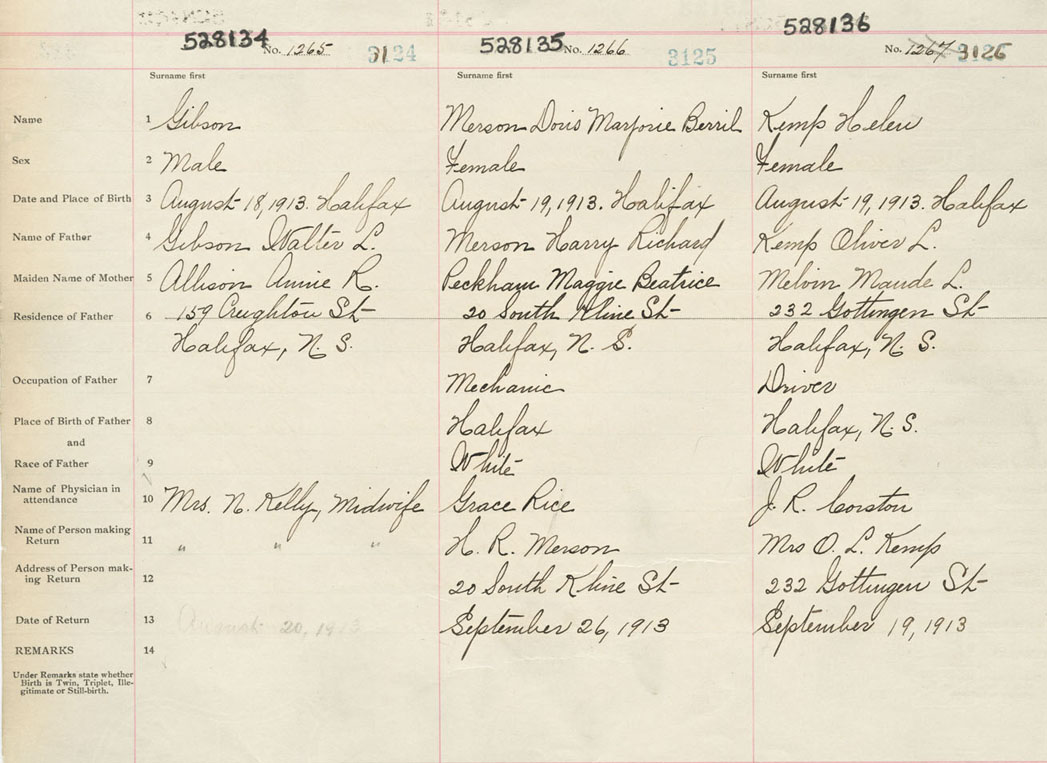 528134 No. 1265 3124 528135 No. 1266 3125 528136 No. 1267 3126
Surname first Surname first Surname first
Name 1 Gibson Merson Doris Marjorie Berril Kemp Helen
Sex 2 Male Female Female
Date and Place of Birth 3 August 18, 1913. Halifax August 19, 1913. Halifax August 19, 1913. Halifax
Name of Father 4 Gibson Walter L. Merson Harry Richard Kemp Oliver L.
Maiden Name of Mother 5 Allison Annie R. Peckham Maggie Beatrice Melvin Maude L.
Residence of Father 6 159 Creighton St 20 South Kline St 232 Gottingen St
Halifax, N. S. Halifax, N. S. Halifax, N. S.
Occupation of Father 7 Mechanic Driver
Place of Birth of Father 8 Halifax Halifax, N. S.
and
Race of Father 9 White White
Name of Physician in
attendance 10 Mrs. N. Kelly, Midwife Grace Rice J. R. Corston
Name of Person making
Return 11 " " " H. R. Merson Mrs O. L. Kemp
Address of Person mak-
ing Return 12 20 South Kline St 232 Gottingen St
Date of Return 13 August 20, 1913 September 26, 1913 September 19, 1913
REMARKS 14
Under Remarks state whether
Birth is Twin, Triplet, Ille-
gitimate or Still-birth.